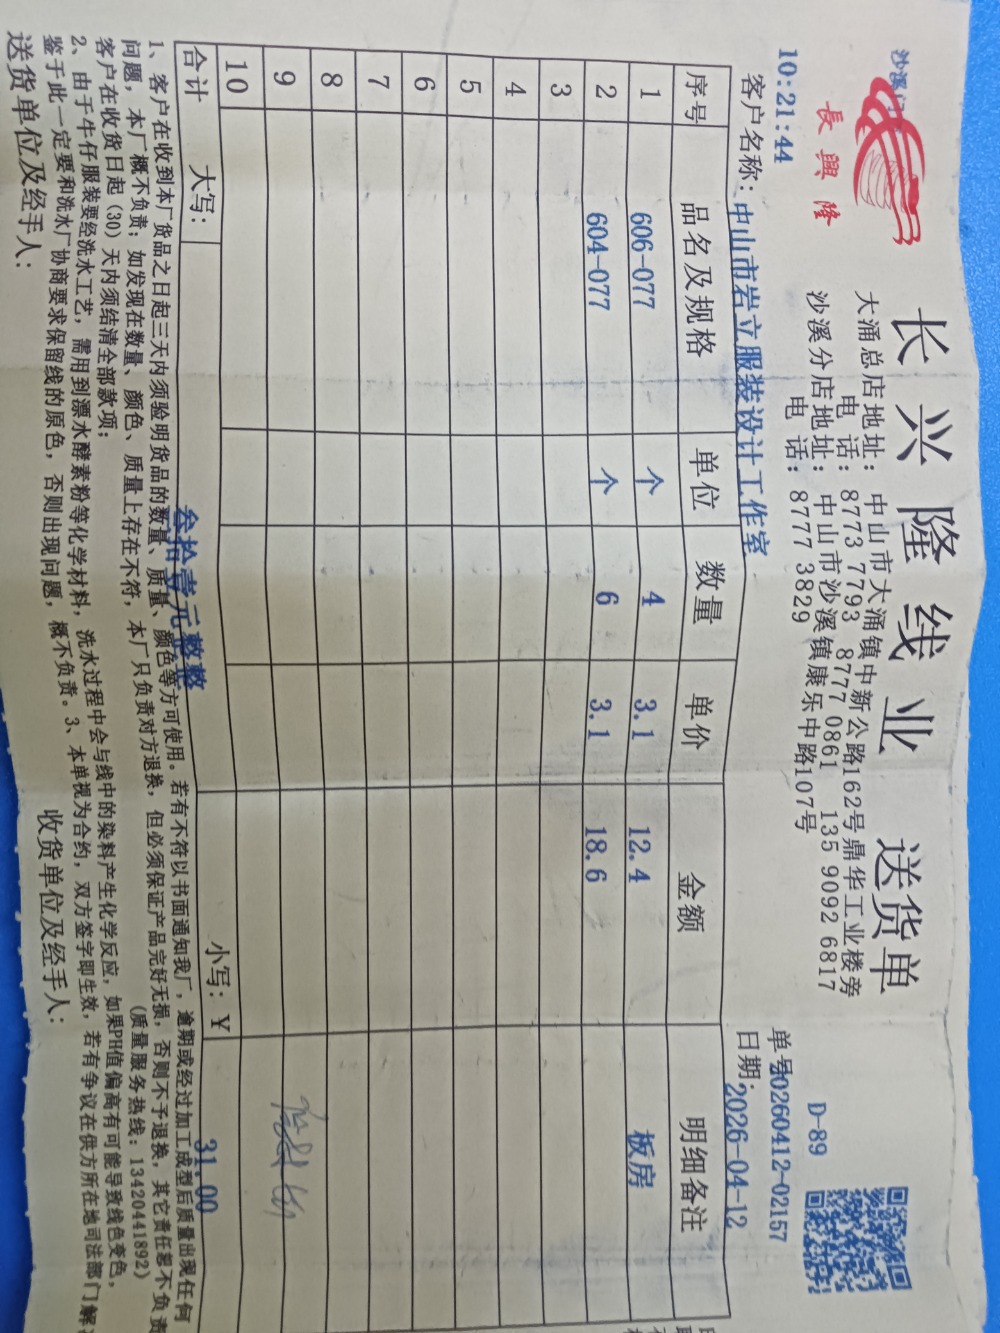 長興隆
长兴隆线业 送货单
大涌总店地址：中山市大涌镇中新公路162号鼎华工业楼旁
电 话：8773 7793 8777 0861 135 9092 6817
沙溪分店地址：中山市沙溪镇康乐中路107号
电 话：8777 3829
D-89
10:21:44
单号20260412-02157
客户名称：中山市岩立服装设计工作室
日期：2026-04-12
序号 品名及规格 单位 数量 单价 金额 明细备注
1 606-077 个 4 3.1 12.4 板房
2 604-077 个 6 3.1 18.6
3
4
5
6
7
8
9
10
合计 大写：叁拾壹元整 小写：￥ 31.00
1、客户在收到本厂货品之日起三天内须验明货品的数量、质量、颜色等方可使用。若有不符以书面通知我厂，逾期或经过加工成型后质量出现任何
问题，本厂概不负责；如发现在数量、颜色、质量上存在不符，本厂只负责对方退换，但必须保证产品完好无损，否则不予退换，其它责任恕不负责
客户在收货日起（30）天内须结清全部款项；
（质量服务热线：13420441892）
2、由于牛仔服装要经洗水工艺，需用到漂水酵素粉等化学材料，洗水过程中会与线中的染料产生化学反应，如果PH值偏高有可能导致线色变色，
鉴于此一定要和洗水厂协商要求保留线的原色，否则出现问题，概不负责。3、本单视为合约，双方签字即生效，若有争议在供方所在地司法部门解
送货单位及经手人：
收货单位及经手人：